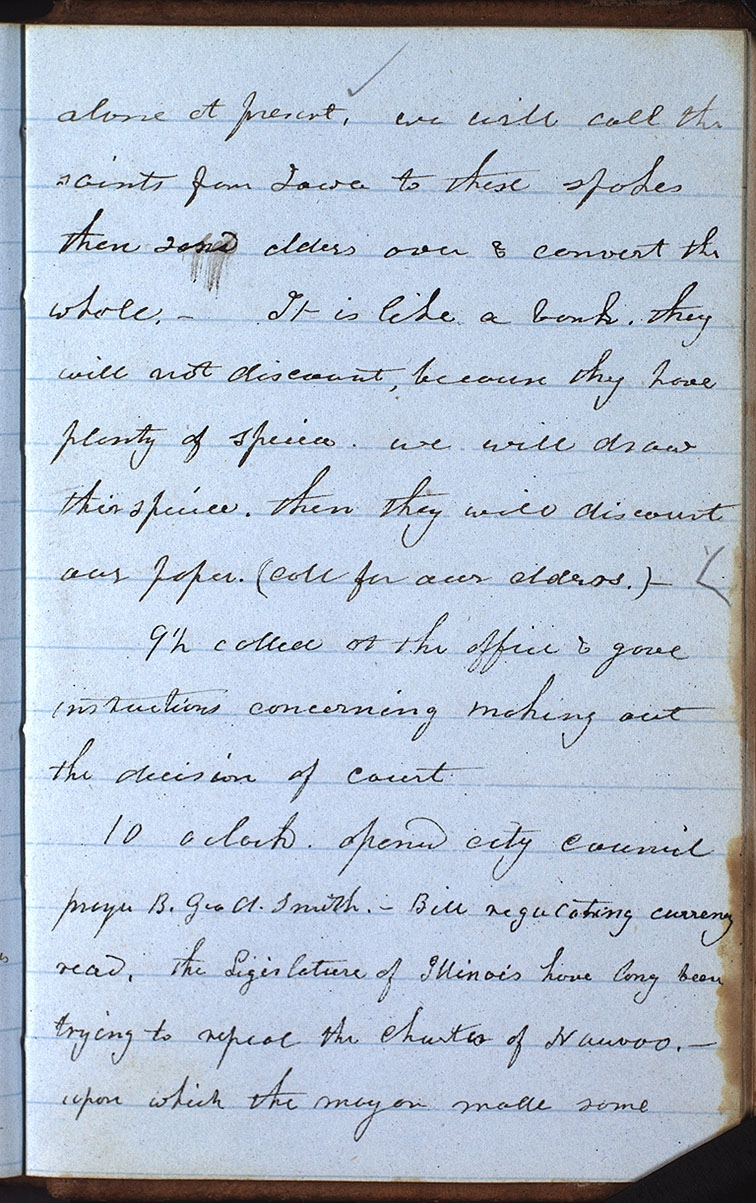 alone at present, we will call the
saints from Iowa to these spokes
then send elders over & convert the
whole. - It is like a bank. they
will not discount, because they have
plenty of specice. we will draw
their speice. then they will discount
our paper. (call for our elders.) -
9½ called at the office & gave
instructions concerning making out
the decision of court
10 o clock. opend city council
prayer B. Geo A. Smith. - Bill regulating currency
read. the Ligislature of Illinois have long been
trying to repeal the charter of Nauvoo. -
upon which the mayor made some